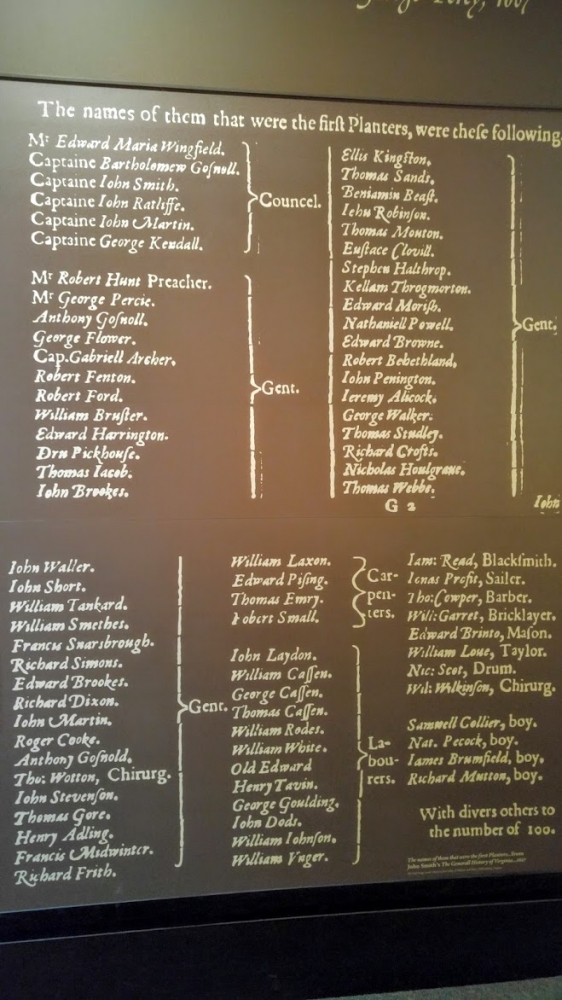 The names of them that were the firſt Planters, were theſe following.
Mʳ Edward Maria Wingfield.
Captaine Bartholomew Goſnoll.
Captaine Iohn Smith.
Captaine Iohn Ratliffe.
Captaine Iohn Martin.
Captaine George Kendall.
Councel.
Mʳ Robert Hunt Preacher.
Mʳ George Percie.
Anthony Goſnoll.
George Flower.
Cap. Gabriell Archer,
Robert Fenton.
Robert Ford.
William Bruſter.
Edward Harrington.
Dru Pickhouſe.
Thomas Iacob.
Iohn Brookes.
Gent.
Ellis Kingſton.
Thomas Sands.
Beniamin Beaſt.
Iehu Robinſon.
Thomas Mouton.
Euſtace Clovill.
Stephen Halthrop.
Kellam Throgmorton.
Edward Moriſh.
Nathaniell Powell.
Edward Browne.
Robert Behethland,
Iohn Penington.
Ieremy Alicock.
George Walker.
Thomas Studley.
Richard Crofts.
Nicholas Houlgraue.
Thomas Webbe.
Gent.
G 2
Iohn
Iohn Waller.
Iohn Short.
William Tankard.
William Smethes.
Francis Snarsbrough.
Richard Simons.
Edward Brookes.
Richard Dixon.
Iohn Martin.
Roger Cooke.
Anthony Goſnold.
Tho: Wotton, Chirurg.
Iohn Stevenſon.
Thomas Gore.
Henry Adling.
Francis Midwinter.
Richard Frith.
Gent.
William Laxon.
Edward Piſing.
Thomas Emry.
Robert Small.
Car-
pen-
ters.
Iohn Laydon.
William Caſſen.
George Caſſen.
Thomas Caſſen.
William Rodes.
William White.
Old Edward
Henry Tavin.
George Goulding.
Iohn Dods.
William Iohnſon.
William Vnger.
La-
bou-
rers.
Iam: Read, Blackſmith.
Ionas Profit, Sailer.
Tho: Cowper, Barber.
Will: Garret, Bricklayer.
Edward Brinto, Maſon.
William Loue, Taylor.
Nic: Scot, Drum.
Wil: Wilkinſon, Chirurg.
Samuell Collier, boy.
Nat. Pecock, boy.
Iames Brumfield, boy.
Richard Mutton, boy.
With divers others to
the number of 100.
The names of them that were the first Planters, from
John Smith's The Generall History of Virginia...